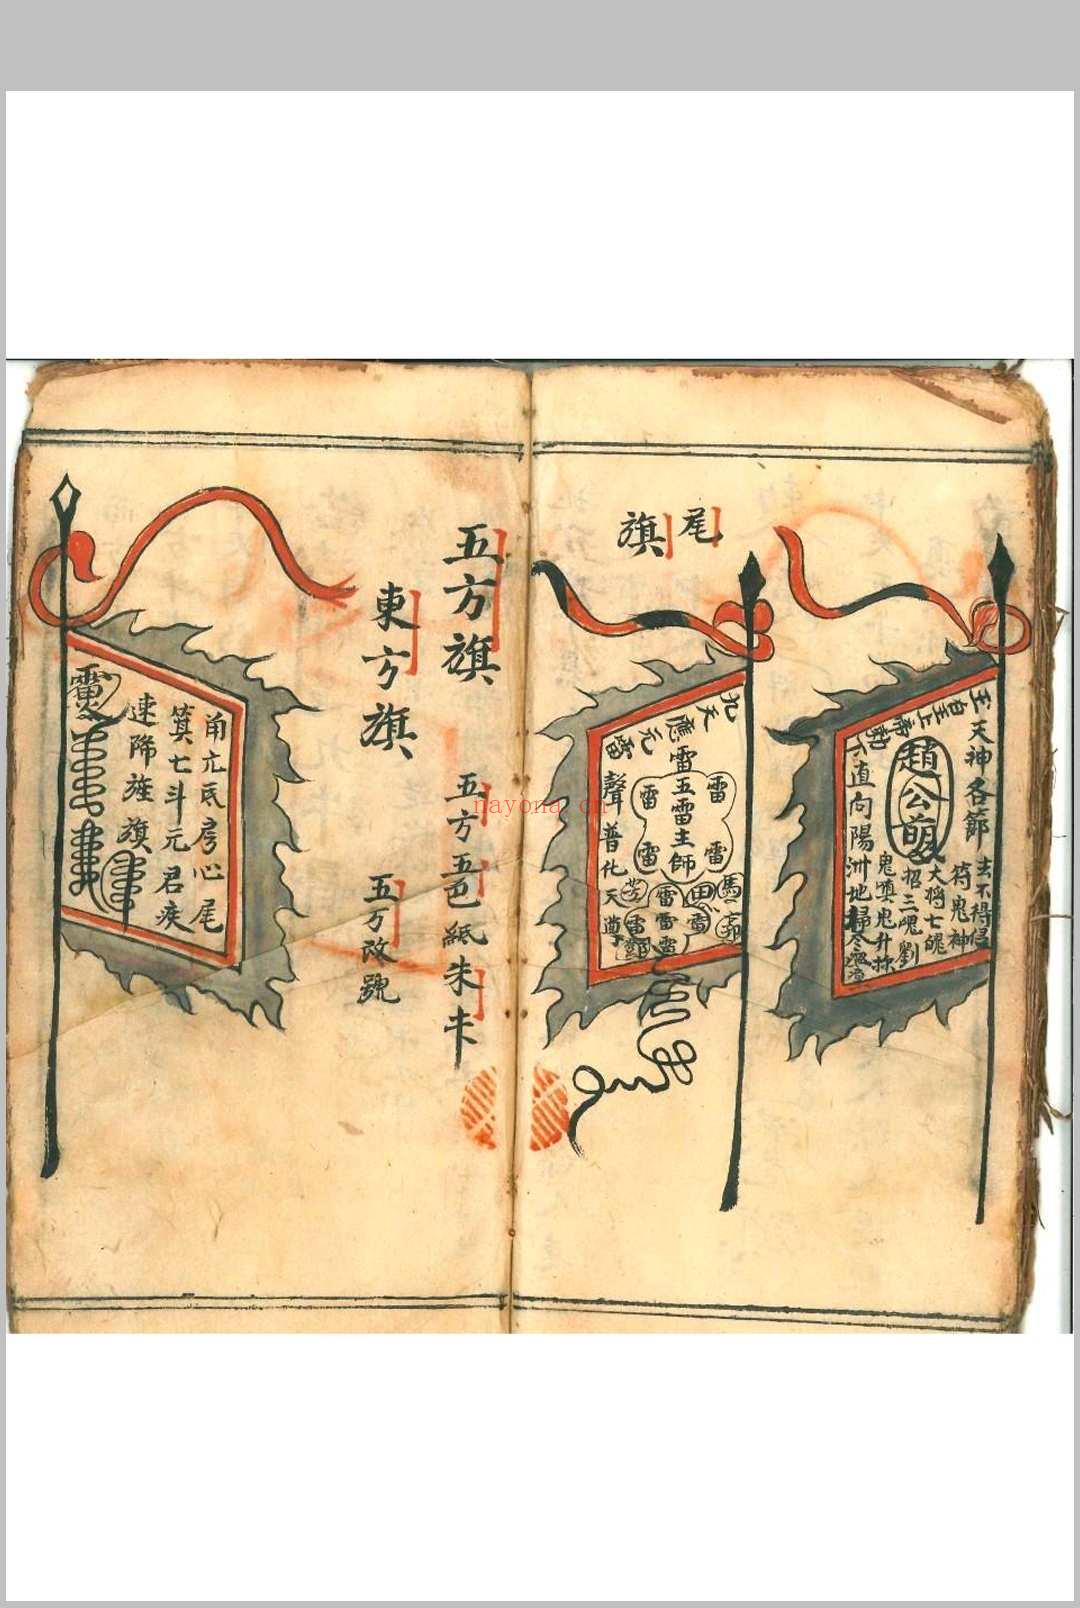 尾
旗
玉
自
主
上
帝
勅
天神各節
趙公
去不得侵
符鬼神
大將七魄
招三魂劉
直向陽州地掃
九天應元雷聲普化天尊
雷五雷主師
雷
雷
雷
雷
馬
田雷
雷雷雷
雷
五方旗
五方五色紙朱
東方旗
五方改號
角亢氐房心尾
箕七斗元君疾
速降旌旗
nayona.cn